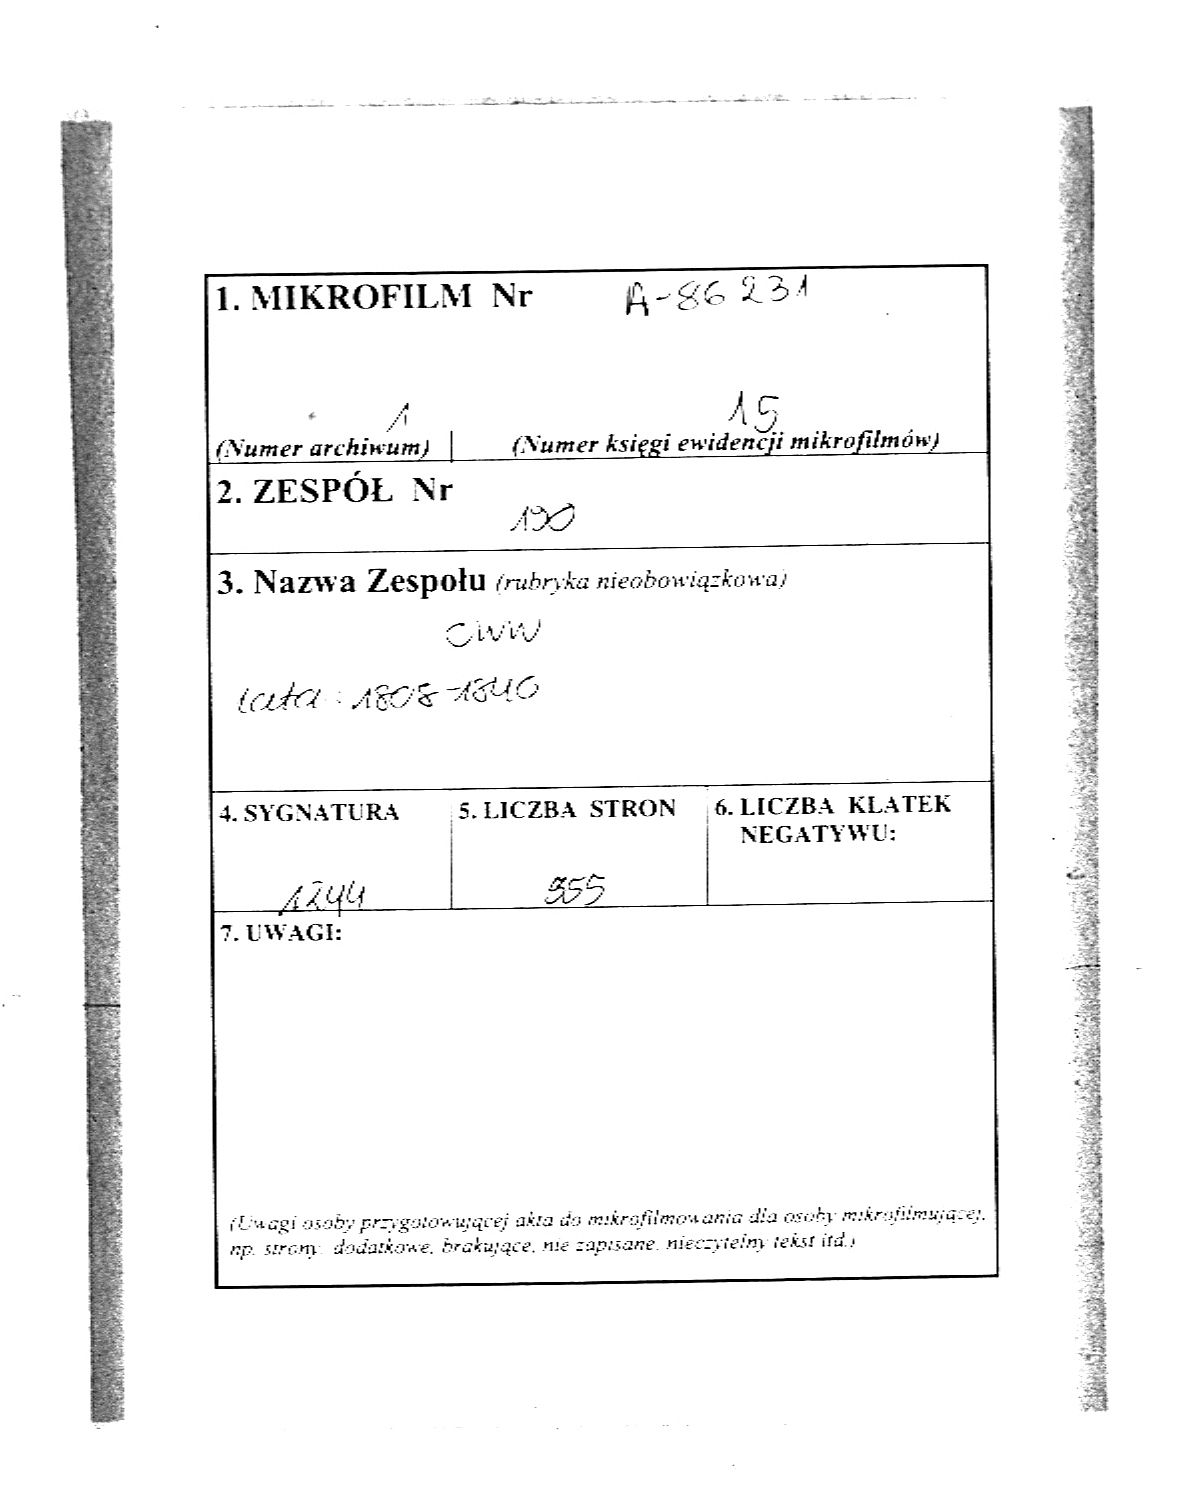 1. MIKROFILM Nr A-86231
1 15
(Numer archiwum) (Numer księgi ewidencji mikrofilmów)
2. ZESPÓŁ Nr
190
3. Nazwa Zespołu (rubryka nieobowiązkowa)
CWW
lata: 1808-1840
4. SYGNATURA 5. LICZBA STRON 6. LICZBA KLATEK
NEGATYWU:
1244 355
7. UWAGI:
(Uwagi osoby przygotowującej akta do mikrofilmowania dla osoby mikrofilmującej,
np. strony: dodatkowe, brakujące, nie zapisane, nieczytelny tekst itd.)